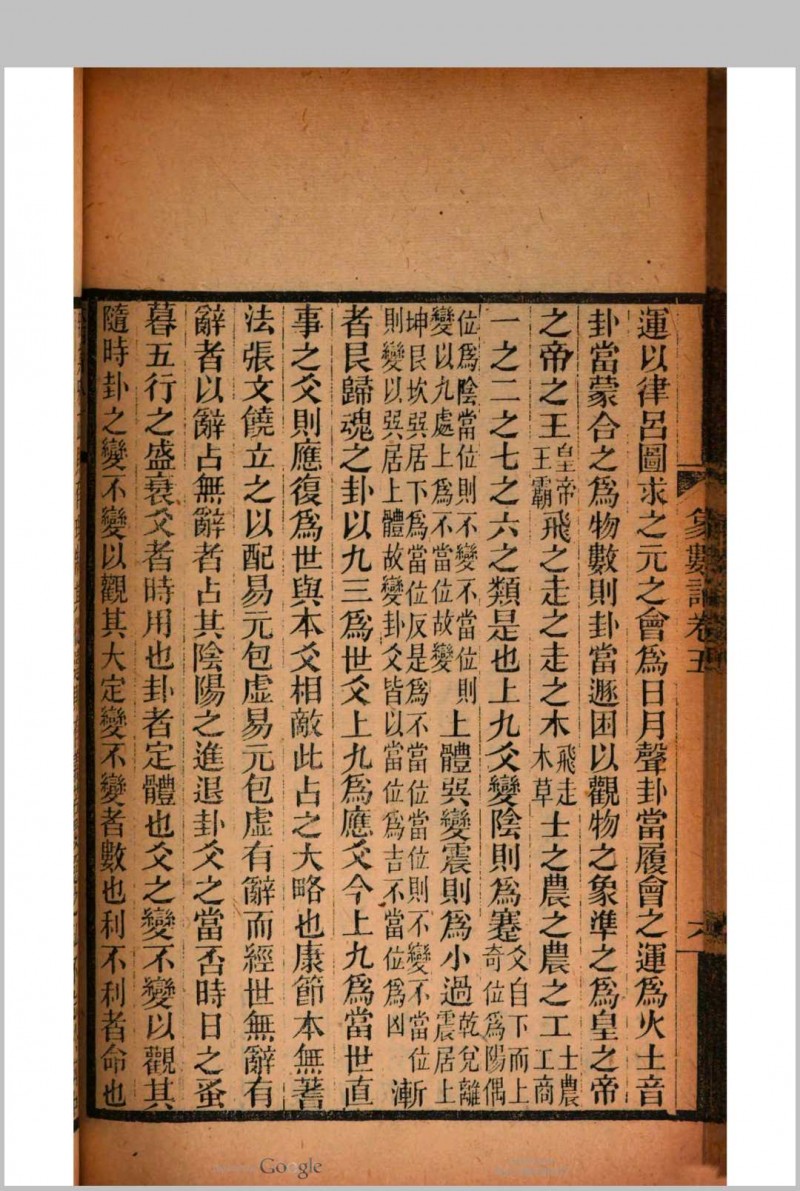 象數論卷五
六
運以律呂圖求之元之會爲日月聲卦當履會之運爲火土音
卦當蒙合之爲物數則卦當遯困以觀物之象準之爲皇之帝
之帝之王皇帝王霸飛之走之走之木飛走木草士之農之農之工士農工商
一之二之七之六之類是也上九爻變陰則爲蹇爻自下而上奇位爲陽偶
位爲陰當位則不變不當位則變以九處上爲不當位故變上體巽變震則爲小過乾兌離震居上
坤艮坎巽居下爲當位反是爲不當位當位則不變不當位則變以巽居上體故變卦爻皆以當位爲吉不當位爲凶漸
者艮歸魂之卦以九三爲世爻上九爲應爻今上九爲當世直
事之爻則應復爲世與本爻相敵此占之大略也康節本無蓍
法張文饒立之以配易元包虛易元包虛有辭而經世無辭有
辭者以辭占無辭者占其陰陽之進退卦爻之當否時日之蚤
暮五行之盛衰爻者時用也卦者定體也爻之變不變以觀其
隨時卦之變不變以觀其大定變不變者數也利不利者命也
Google